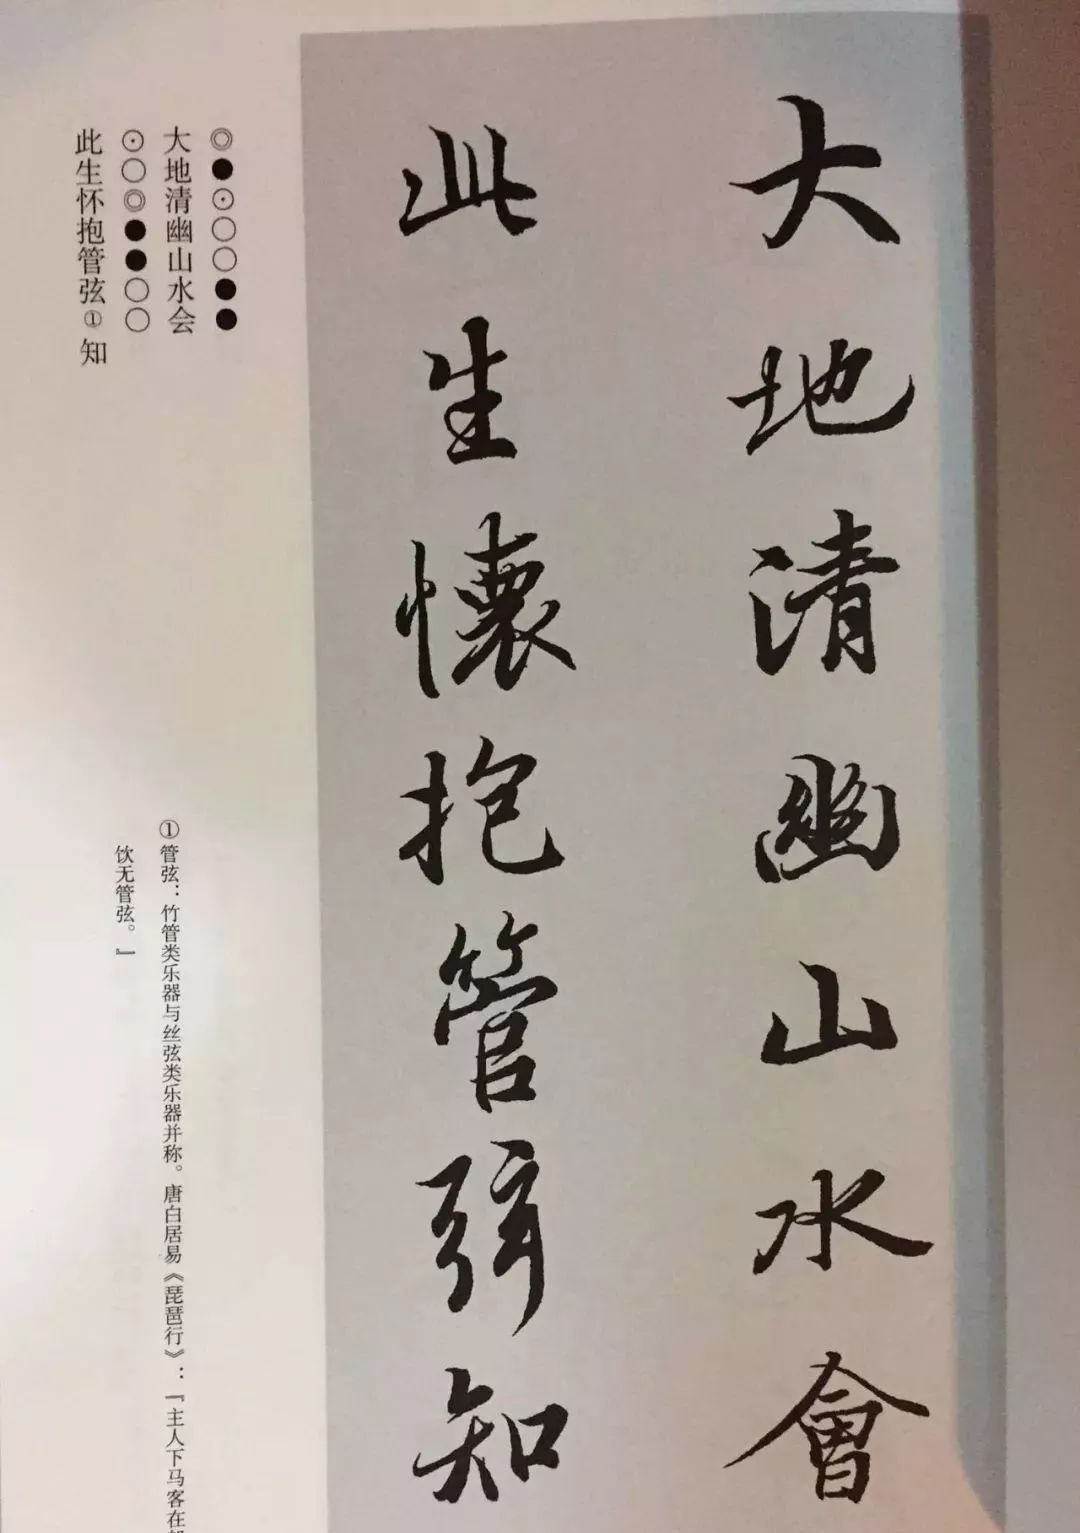 大地清幽山水會
此生懷抱管弦知
◎●⊙○○●●
大地清幽山水会
⊙○◎●●○○
此生怀抱管弦①知
①管弦：竹管类乐器与丝弦类乐器并称。唐白居易《琵琶行》：『主人下马客在船
饮无管弦。』